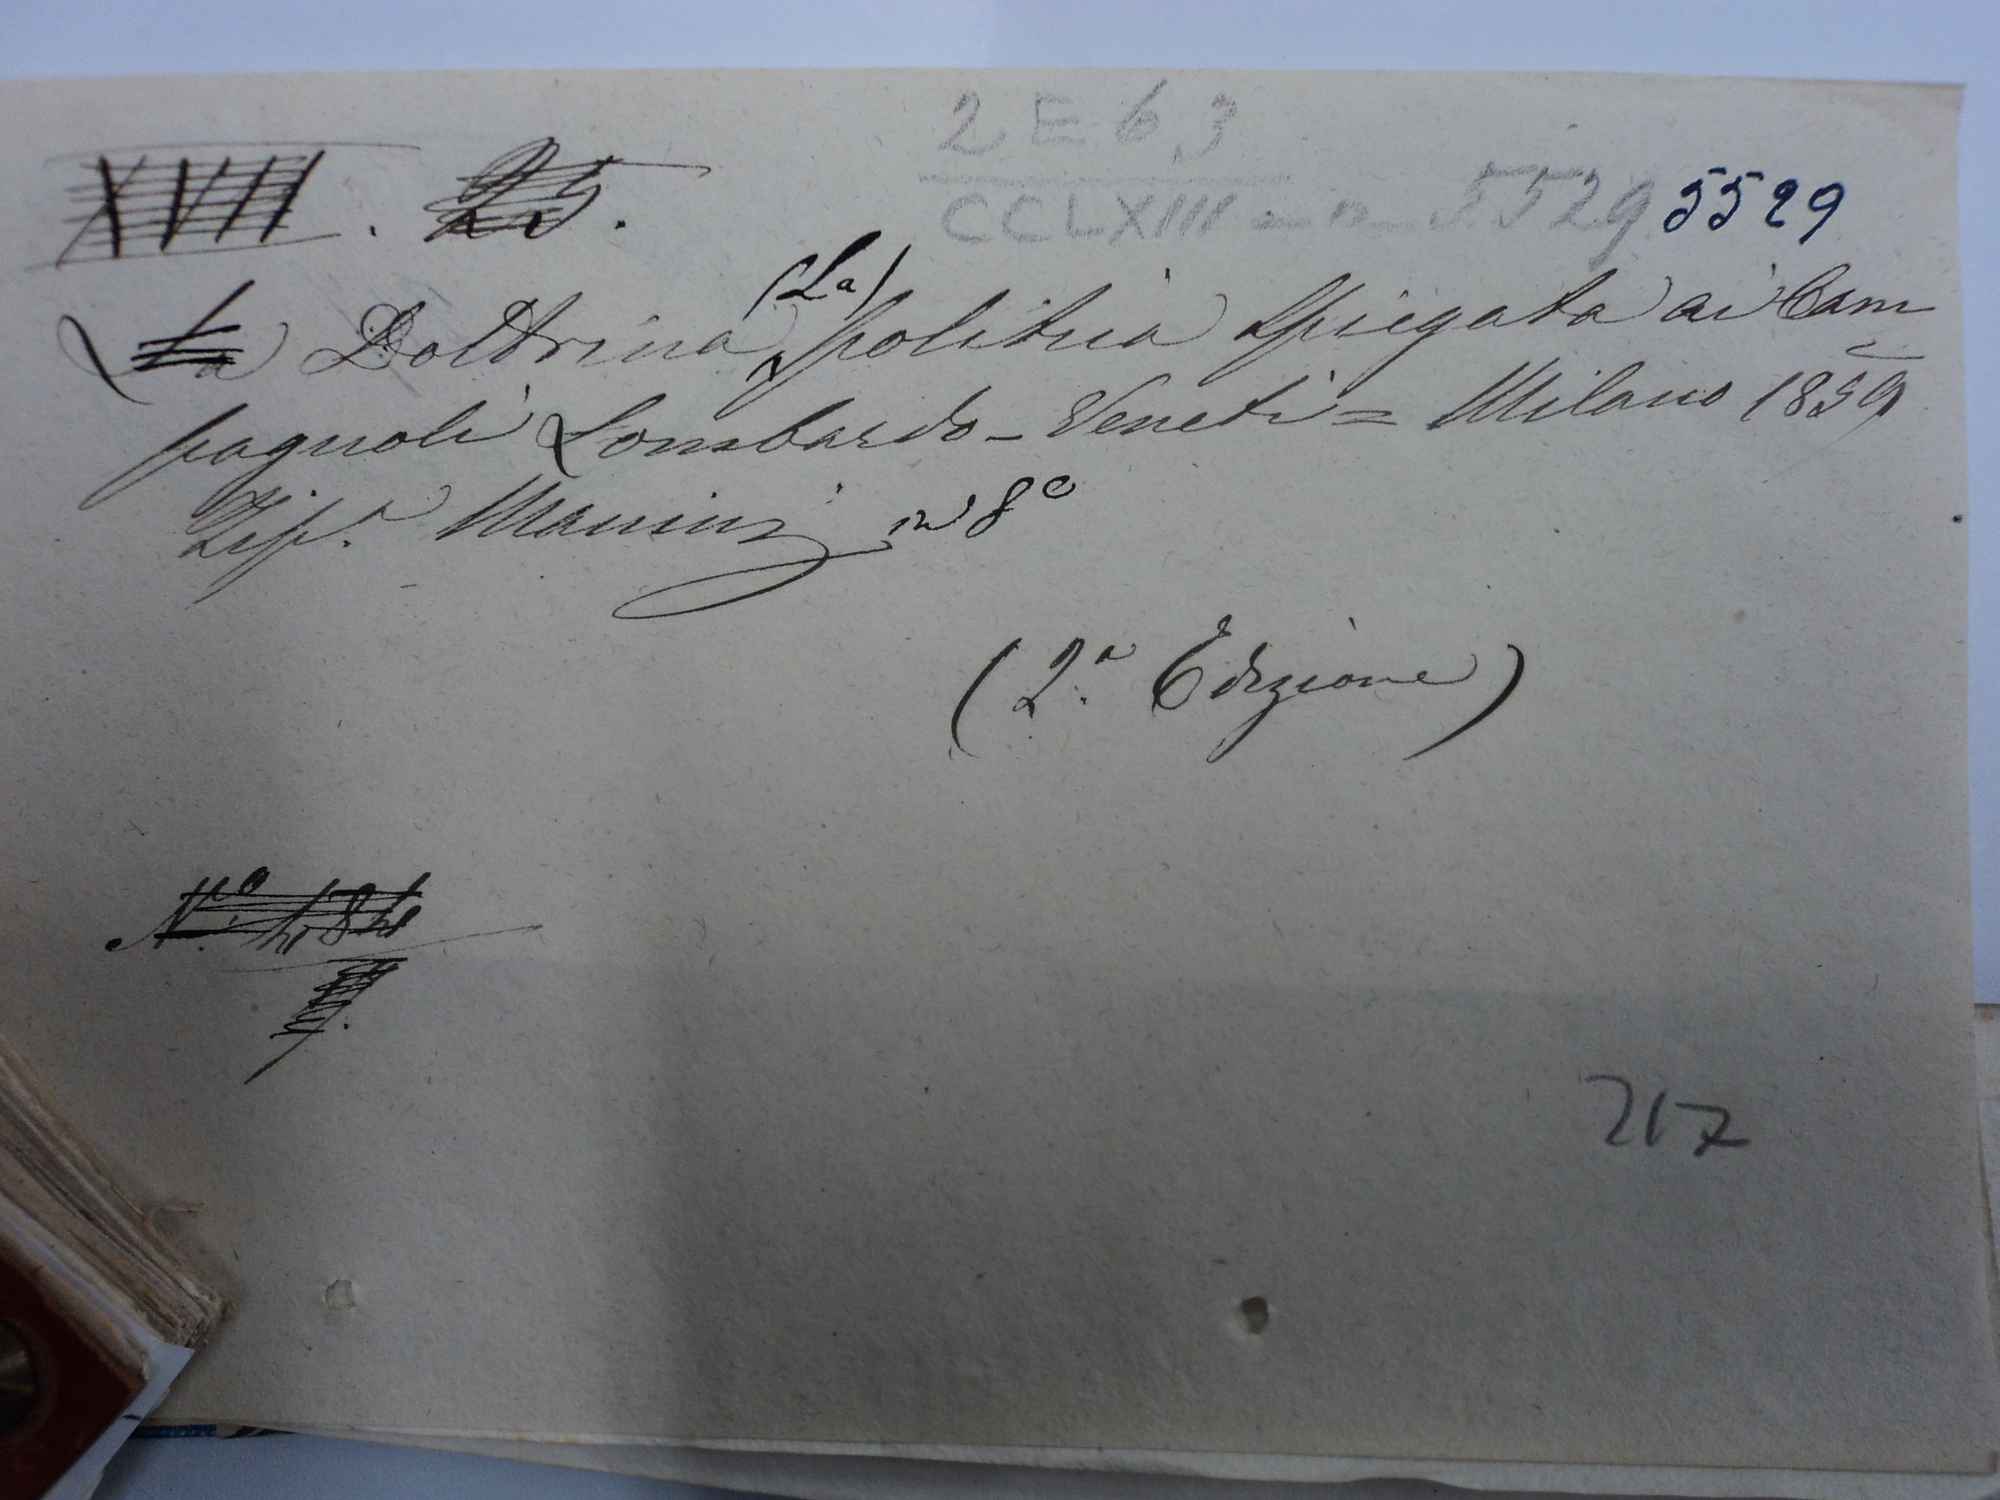 2 E 6 3
XVII. 25. CCLXIII - n - 5529 5529
La Dottrina (La) politica spiegata ai Cam
pagnoli Lombardo-Veneti = Milano 1859
Tip.a Manini in 8o
(2.a Edizione)
217